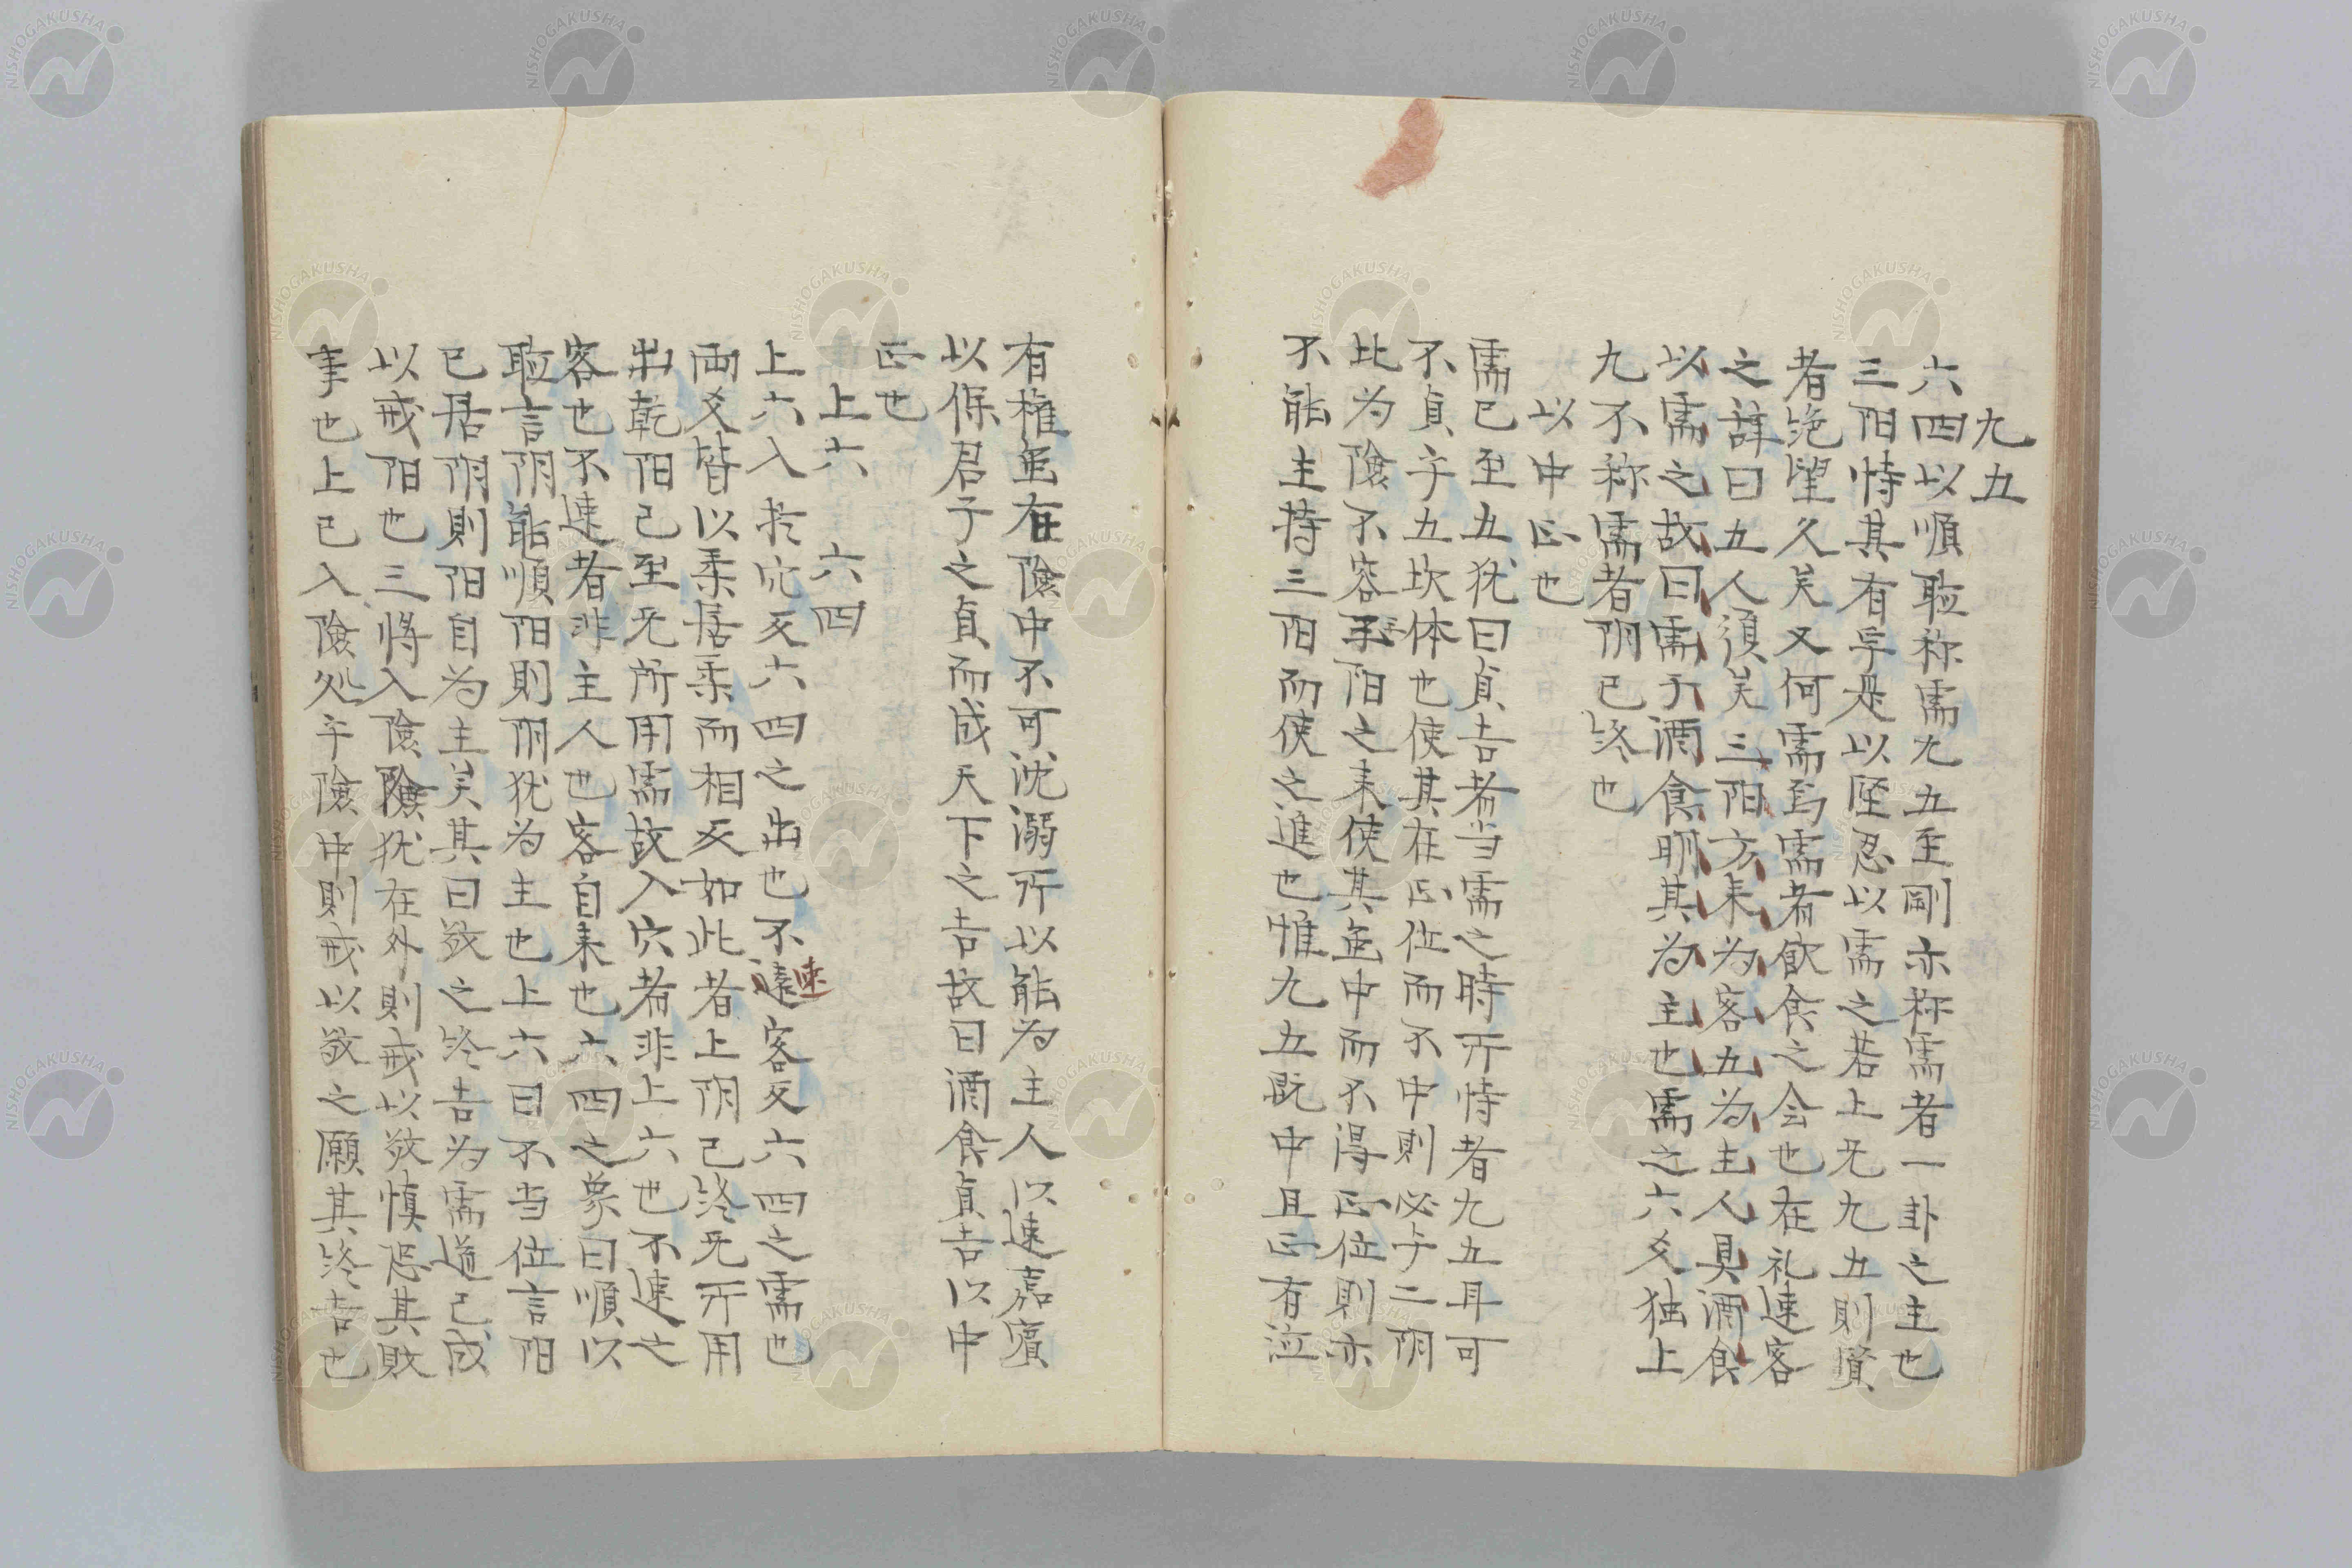 九五
六四以順聴称需九五至剛亦称需者一卦之主也
三阳恃其有孚是以堅忍以需之若上无九五則賢
者绝望久矣又何需焉需者飲食之会也在礼速客
之辞曰五人須矣三阳方来为客五为主人具酒食
以需之故曰需于酒食明其为主也需之六爻独上
九不称需者阴已终也
以中正也
需已至五犹曰貞吉者当需之時所恃者九五耳可
不貞乎五坎体也使其在正位而不中則必与二阴
比为險不容三阳之来使其在中而不得正位則亦
不能主持三阳而使之進也惟九五既中且正有泣
有権在險中不可沈溺所以能为主人以速嘉賓
以保君子之貞而成天下之吉故曰酒食貞吉以中
正也
上六 六四
上六入于穴反六四之出也不速客反六四之需也
両爻皆以柔居柔而相反如此者上阴已终无所用
出乾阳已至无所用需故入穴者非上六也不速之
客也不速者非主人也客自来也六四之象曰順以
聴言阴能順阳則阴犹为主也上六曰不当位言阳
已居阴則阳自为主矣其曰敬之终吉为需道已成
以戒阳也三将入險險犹在外則戒以敬慎恐其敗
事也上已入險処乎險中則戒以敬之願其终吉也
NISHOGAKUSHA